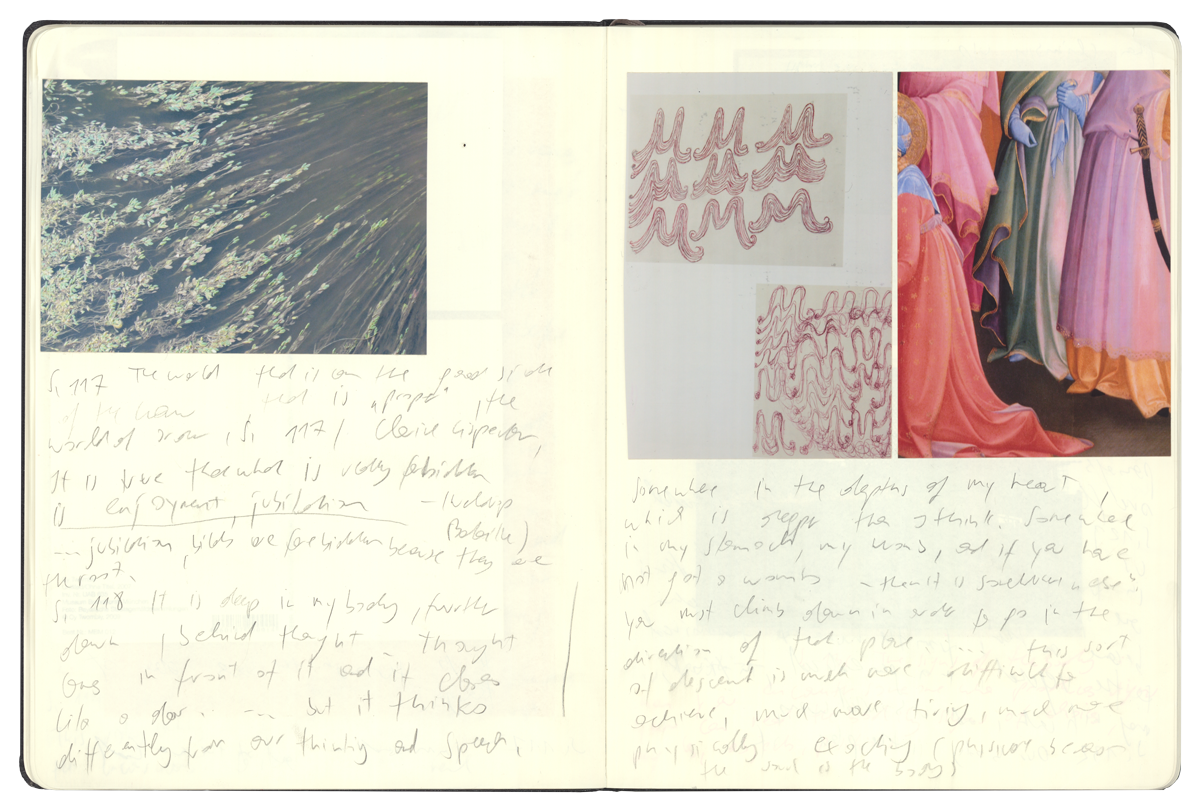 S. 117 The world that is on the good side
of the that is "proper", the
world of, S. 117 / Clarice Lispector,
It is true that what is really forbidden
is enjoyment, jubilation –
Bataille)
.... jubilation, birds are forbidden because they are
S. 118 It is deep in my body, further
down, behind thought – Thought
comes in front of it and it closes
like a door. .... but it thinks
differently from our thinking and speech.
Somewhere in the depths of my heart,
which is deeper than I think. Somewhere
in my stomach, my womb, and if you have
not got a womb – then it is somewhere "else".
You must climb down in order to go in the
direction of that place ..... this sort
of descent is much more difficult to
achieve, much more tiring, much more
physically exacting (physical because
the soul is the body)